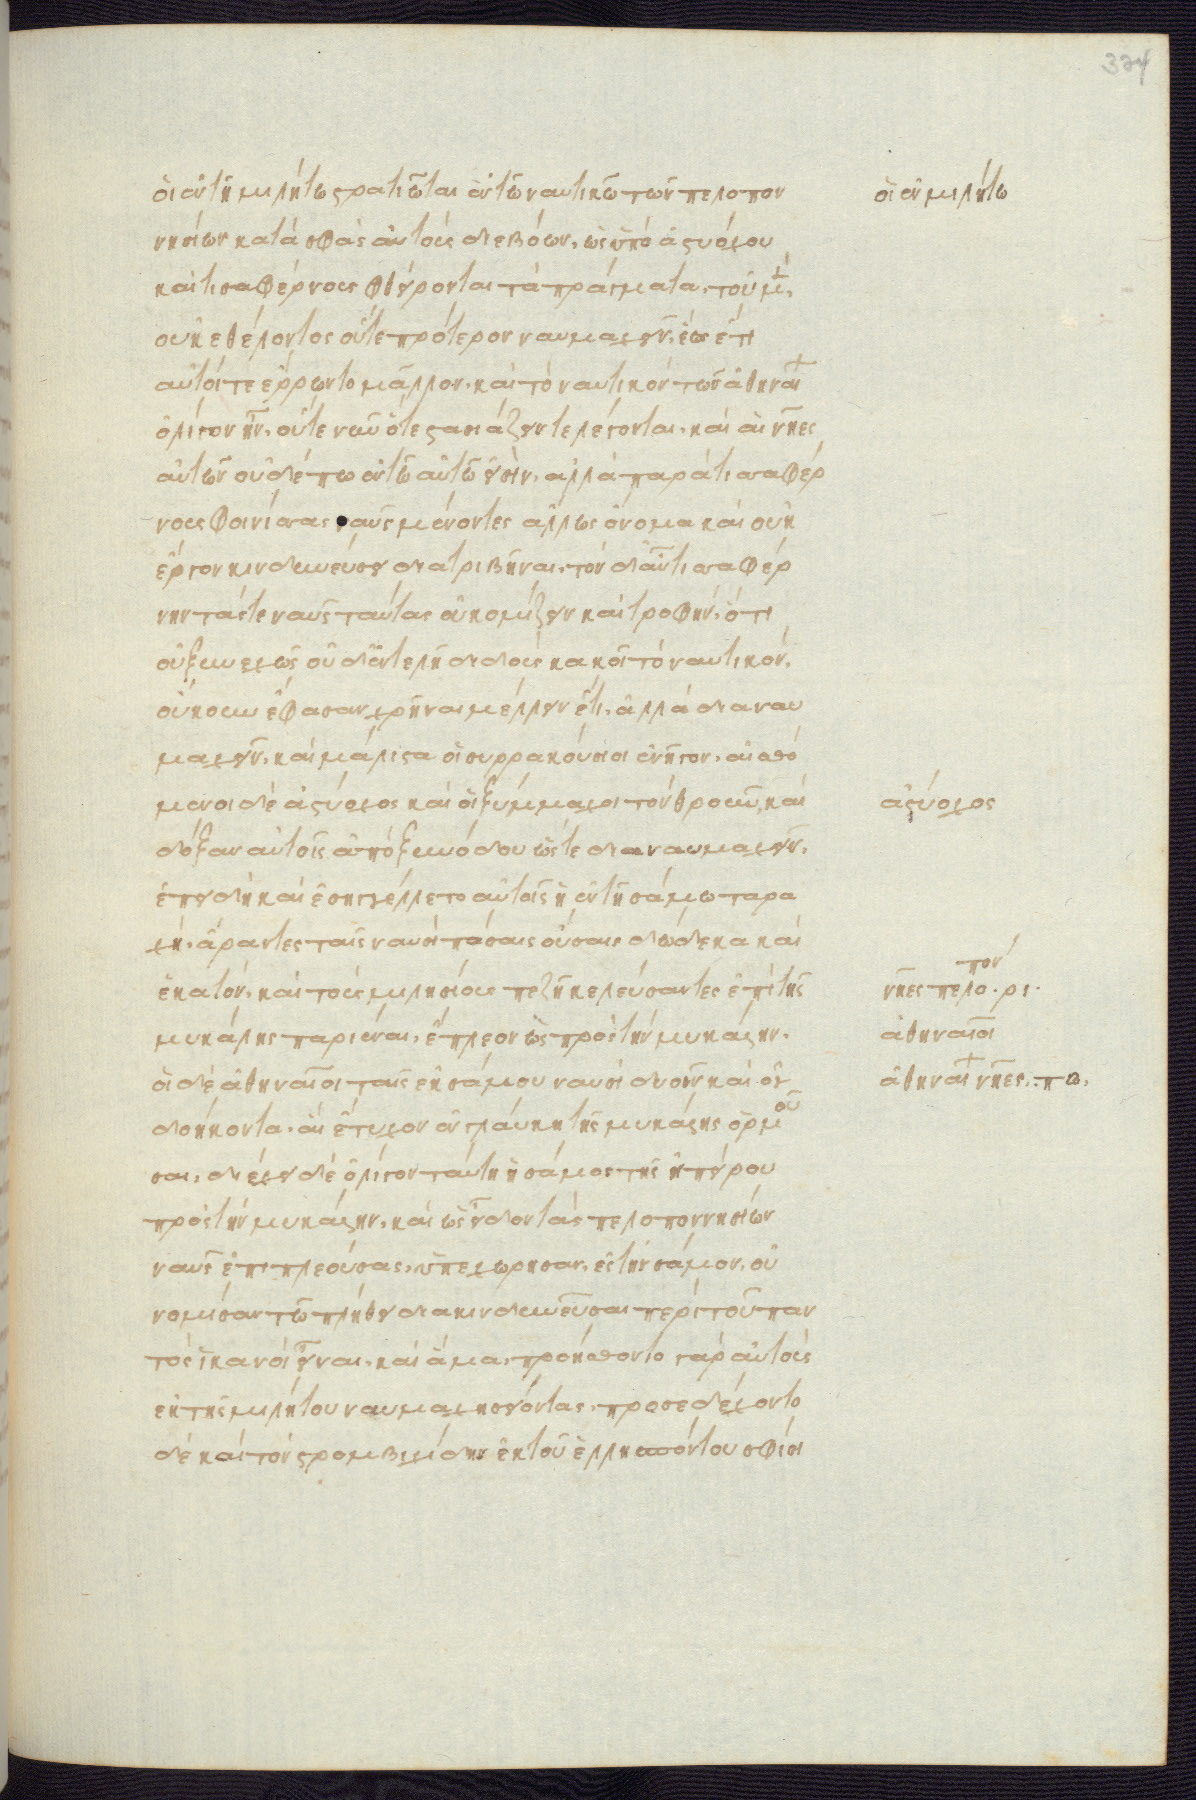 334
οἱ ἐν τῆ μιλήτω στρατιῶται ἐν τῶ ναυτικῶ τῶν πελοπον
οἱ ἐν μιλήτω
νησίων κατὰ σφᾶς αὐτοὺς διεβόων, ὡς ὑπὸ ἀστυόχου
καὶ τισαφέρνους φθείρονται τὰ πράγματα, τοῦ μὲν
οὐκ ἐθέλοντος οὔτε πρότερον ναυμαχεῖν, ἕως ἔτι
αὐτοί τε ἔρρωντο μᾶλλον, καὶ τὸ ναυτικὸν τῶν ἀθηναί
ὀλίγον ἦν, οὔτε νῦν ὅτε στασιάζειν τε λέγονται, καὶ αἱ νῆες
αὐτῶν οὐδέπω ἐν τῶ αὐτῶ εἰσὶν, ἀλλὰ παρὰ τισαφέρ
νους φοινίσσας ναῦς μένοντες ἄλλως ὄνομα καὶ οὐκ
ἔργον κινδυνεύσειν διατριβῆναι, τὸν δ' αὖ τισσαφέρ
νην τάς τε ναῦς ταύτας οὐ κομίζειν καὶ τροφὴν, ὅτι
οὐ ξυνεχῶς οὐδ' ἐντελῆ διδοὺς κακοῖ τὸ ναυτικόν,
οὔκουν ἔφασαν χρῆναι μέλλειν ἔτι, ἀλλὰ διαναυ
μαχεῖν, καὶ μάλιστα οἱ συρρακούσιοι ἐνῆγον, αἰσθό
μενοι δὲ ἀστύοχος καὶ οἱ ξύμμαχοι τὸν θροῦν, καὶ
ἀστύοχος
δόξαν αὐτοῖς ἀπὸ ξυνόδου ὥστε διαναυμαχεῖν,
ἐπειδὴ καὶ ἐσηγγέλλετο αὐτοῖς ἡ ἐν τῆ σάμω ταρα
χὴ, ἄραντες ταῖς ναυσὶ πάσαις οὔσαις δώδεκα καὶ
ἑκατὸν, καὶ τοὺς μιλησίους πεζῆ κελεύσαντες ἐπὶ τῆς
νῆες πελοπον. ρι.
μυκάλης παριέναι, ἔπλεον ὡς πρὸς τὴν μυκάλην.
ἀθηναῖοι
οἱ δὲ ἀθηναῖοι ταῖς ἐκ σάμου ναυσὶ δυοῖν καὶ ὀγ
ἀθηναί νῆες. πβ.
δοήκοντα, αἳ ἔτυχον ἐν γλαύκη τῆς μυκάλης ὁρμοῦ
σαι, διέχει δὲ ὀλίγον ταύτη ἡ σάμος τῆς ἠπείρου
πρὸς τὴν μυκάλην, καὶ ὡς εἶδον τὰς πελοποννησίων
ναῦς ἐπιπλεούσας, ὑπεχώρησαν, ἐς τὴν σάμον, οὐ
νομίσαν τῶ πλήθει διακινδυνεῦσαι περὶ τοῦ παν
τὸς ἱκανοὶ εἶναι, καὶ ἅμα, προήσθοντο γὰρ αὐτοὺς
ἐκ τῆς μιλήτου ναυμαχησείοντας, προσεδέχοντο
δὲ καὶ τὸν στρομβιχίδην ἐκ τοῦ ἑλλησπόντου σφίσι